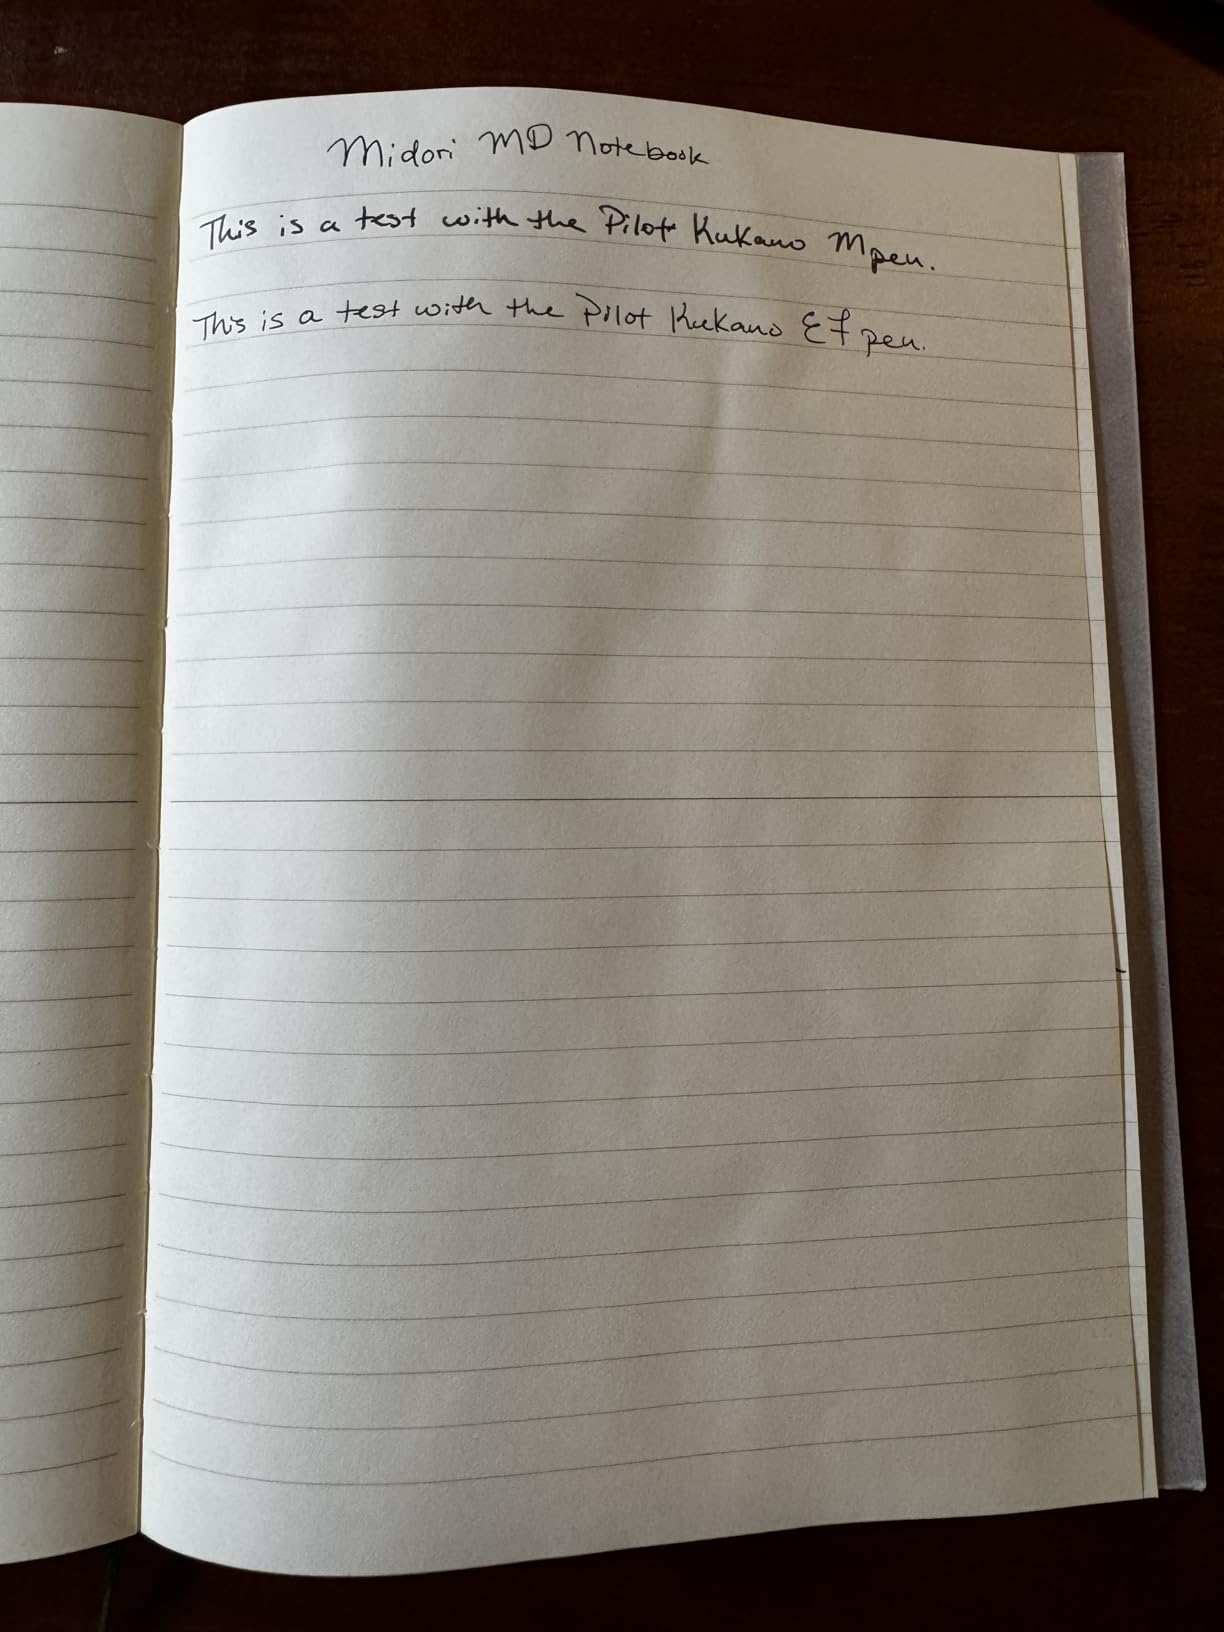 Midori MD Notebook
This is a test with the Pilot Kukano M pen.
This is a test with the Pilot Kukano EF pen.